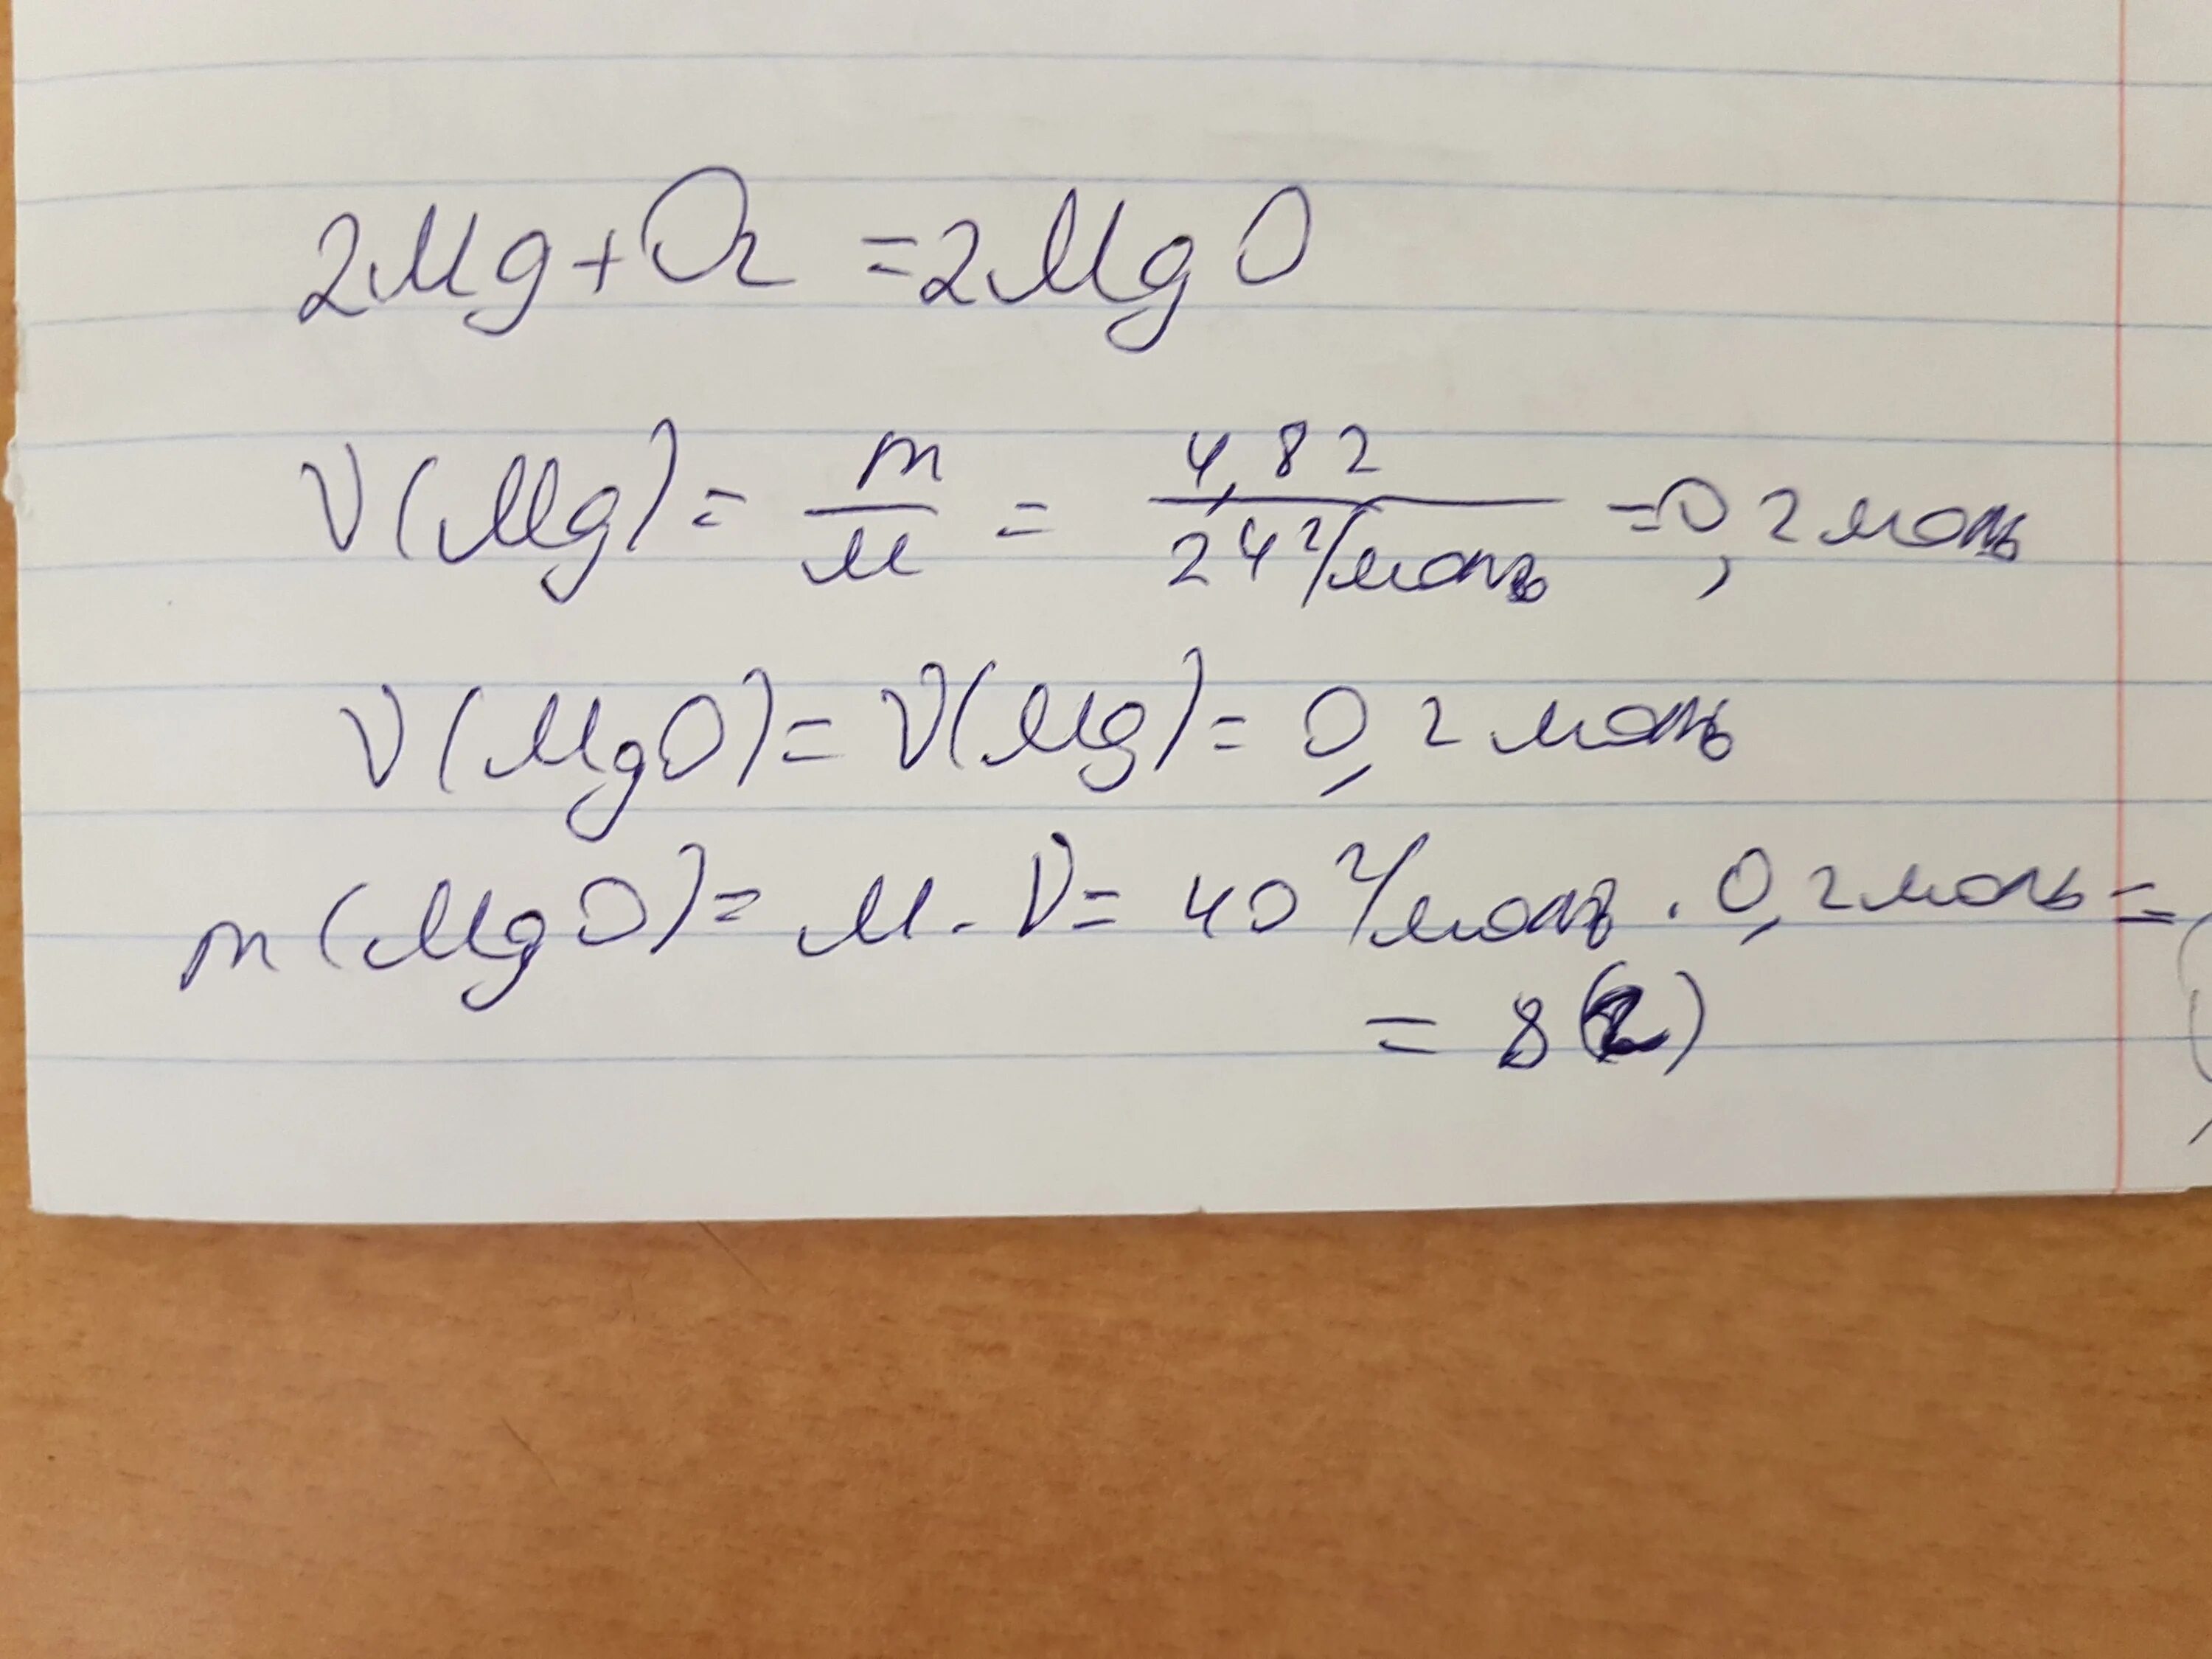 2Mg+O₂ =2MgO
ν(Mg)= m/M = 4,8 г/24 г/моль =0,2 моль
ν(MgO)= ν(Mg)= 0,2 моль
m(MgO)= M · ν= 40 г/моль · 0,2 моль=
= 8(г)